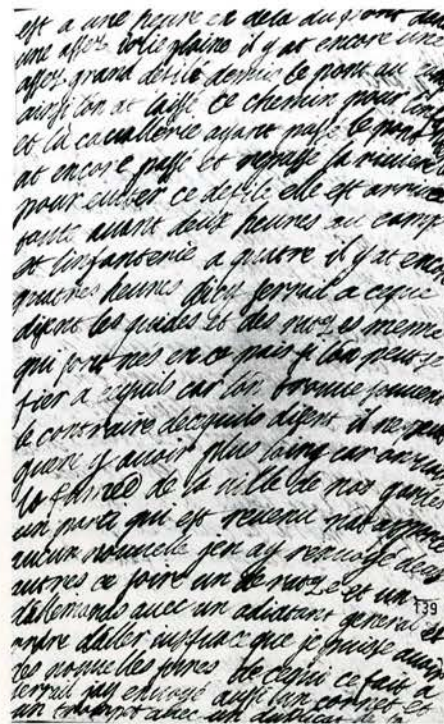 est a une heure et dela du pont dans
une assez jolie plaine il y at encore une
assez grand défilé depuis le pont au
ainsi l'on at laissé ce chemin pour l'inf
et la cavallerie ayant passé le pont
at encore passé et repassé la riviere
pour eviter ce defile elle est arrivée
toute avant deux heures au camp
et linfanterie a quatre il y at enco
heures dicy a ce qui
disent les guides et des mesme
qui sont nés en ce pais si l'on peut se
fier a cequils car lon trouve souvent
le contraire de cequils disent il ne peut
guere y avoir plus loing car on
la de la ville de nos gardes
un parti qui est revenu n'at appris
aucun nouvelle jen ay renvoyé deux
autres ce soire un de et un
dallemands avec un adiutant general et
ordre daller jusqua ce que je puisse avoir
des nouvelles seures de cequi ce fait a
jay envoyé aussi un cornet et
un trompet avec un
139